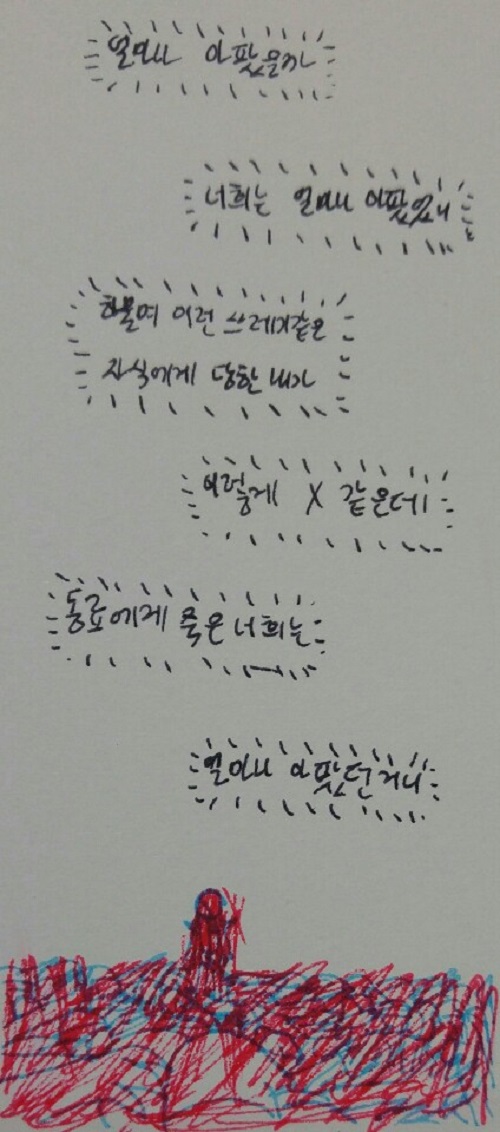 얼마나 아팠을까
너희는 얼마나 아팠었니
하물며 이런 쓰레기같은
자식에게 당한 내가
이렇게 X 같은데
동료에게 죽은 너희는
얼마나 아팠던거니